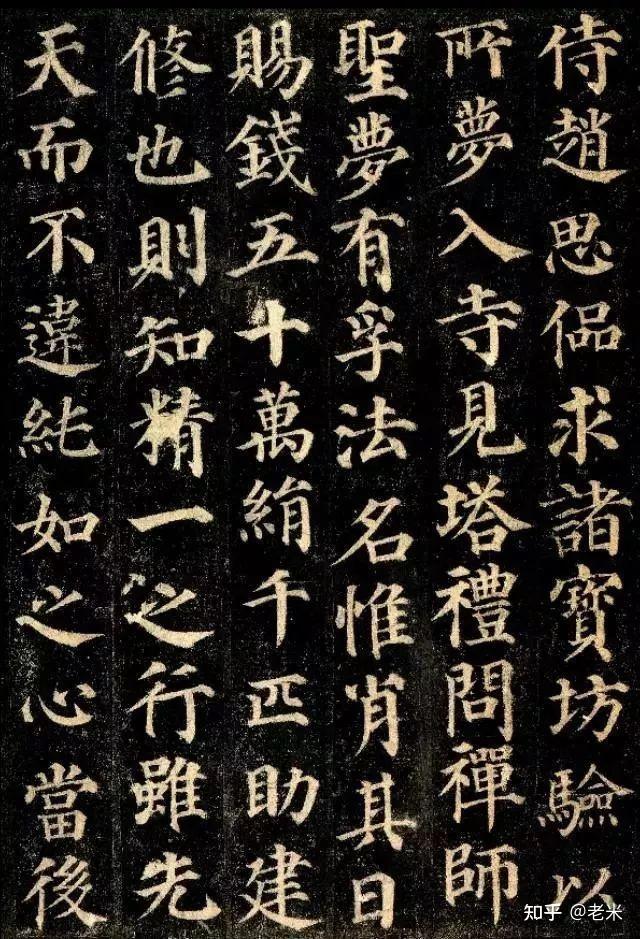 侍趙思偘求諸寶坊驗以
所夢入寺見塔禮問禪師
聖夢有孚法名惟肖其日
賜錢五十萬絹千匹助建
修也則知精一之行雖先
天而不違純如之心當後
知乎 @老米